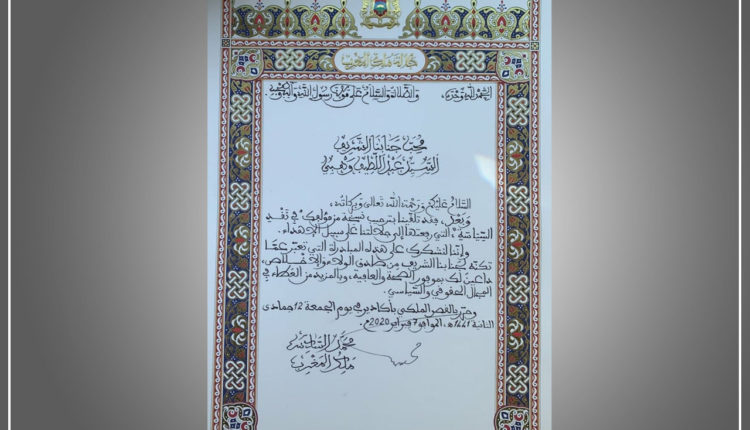 جلالة ملك المغرب
الحمد لله وحده، والصلاة والسلام على مولانا رسول الله وآله وصحبه.
محب جنابنا الشريف
السيد عبد اللطيف وهبي
السلام عليكم ورحمة الله تعالى وبركاته،
وبعد، فقد تلقينا بترحيب نسخة من مؤلفك "في نقد
السياسة" التي رفعتها إلى جلالتنا على سبيل الإهداء.
وإننا لنشكرك على هذه المبادرة التي تعبر عما
تكنه لجنابنا الشريف من صادق الولاء والإخلاص،
داعين لك بموفور الصحة والعافية، وبالمزيد من العطاء في
المجال الحقوقي والسياسي.
وحرر بالقصر الملكي بأكادير في يوم الجمعة 12 جمادى
الثانية 1441هـ، الموافق 7 فبراير 2020م.
محمد السادس
ملك المغرب